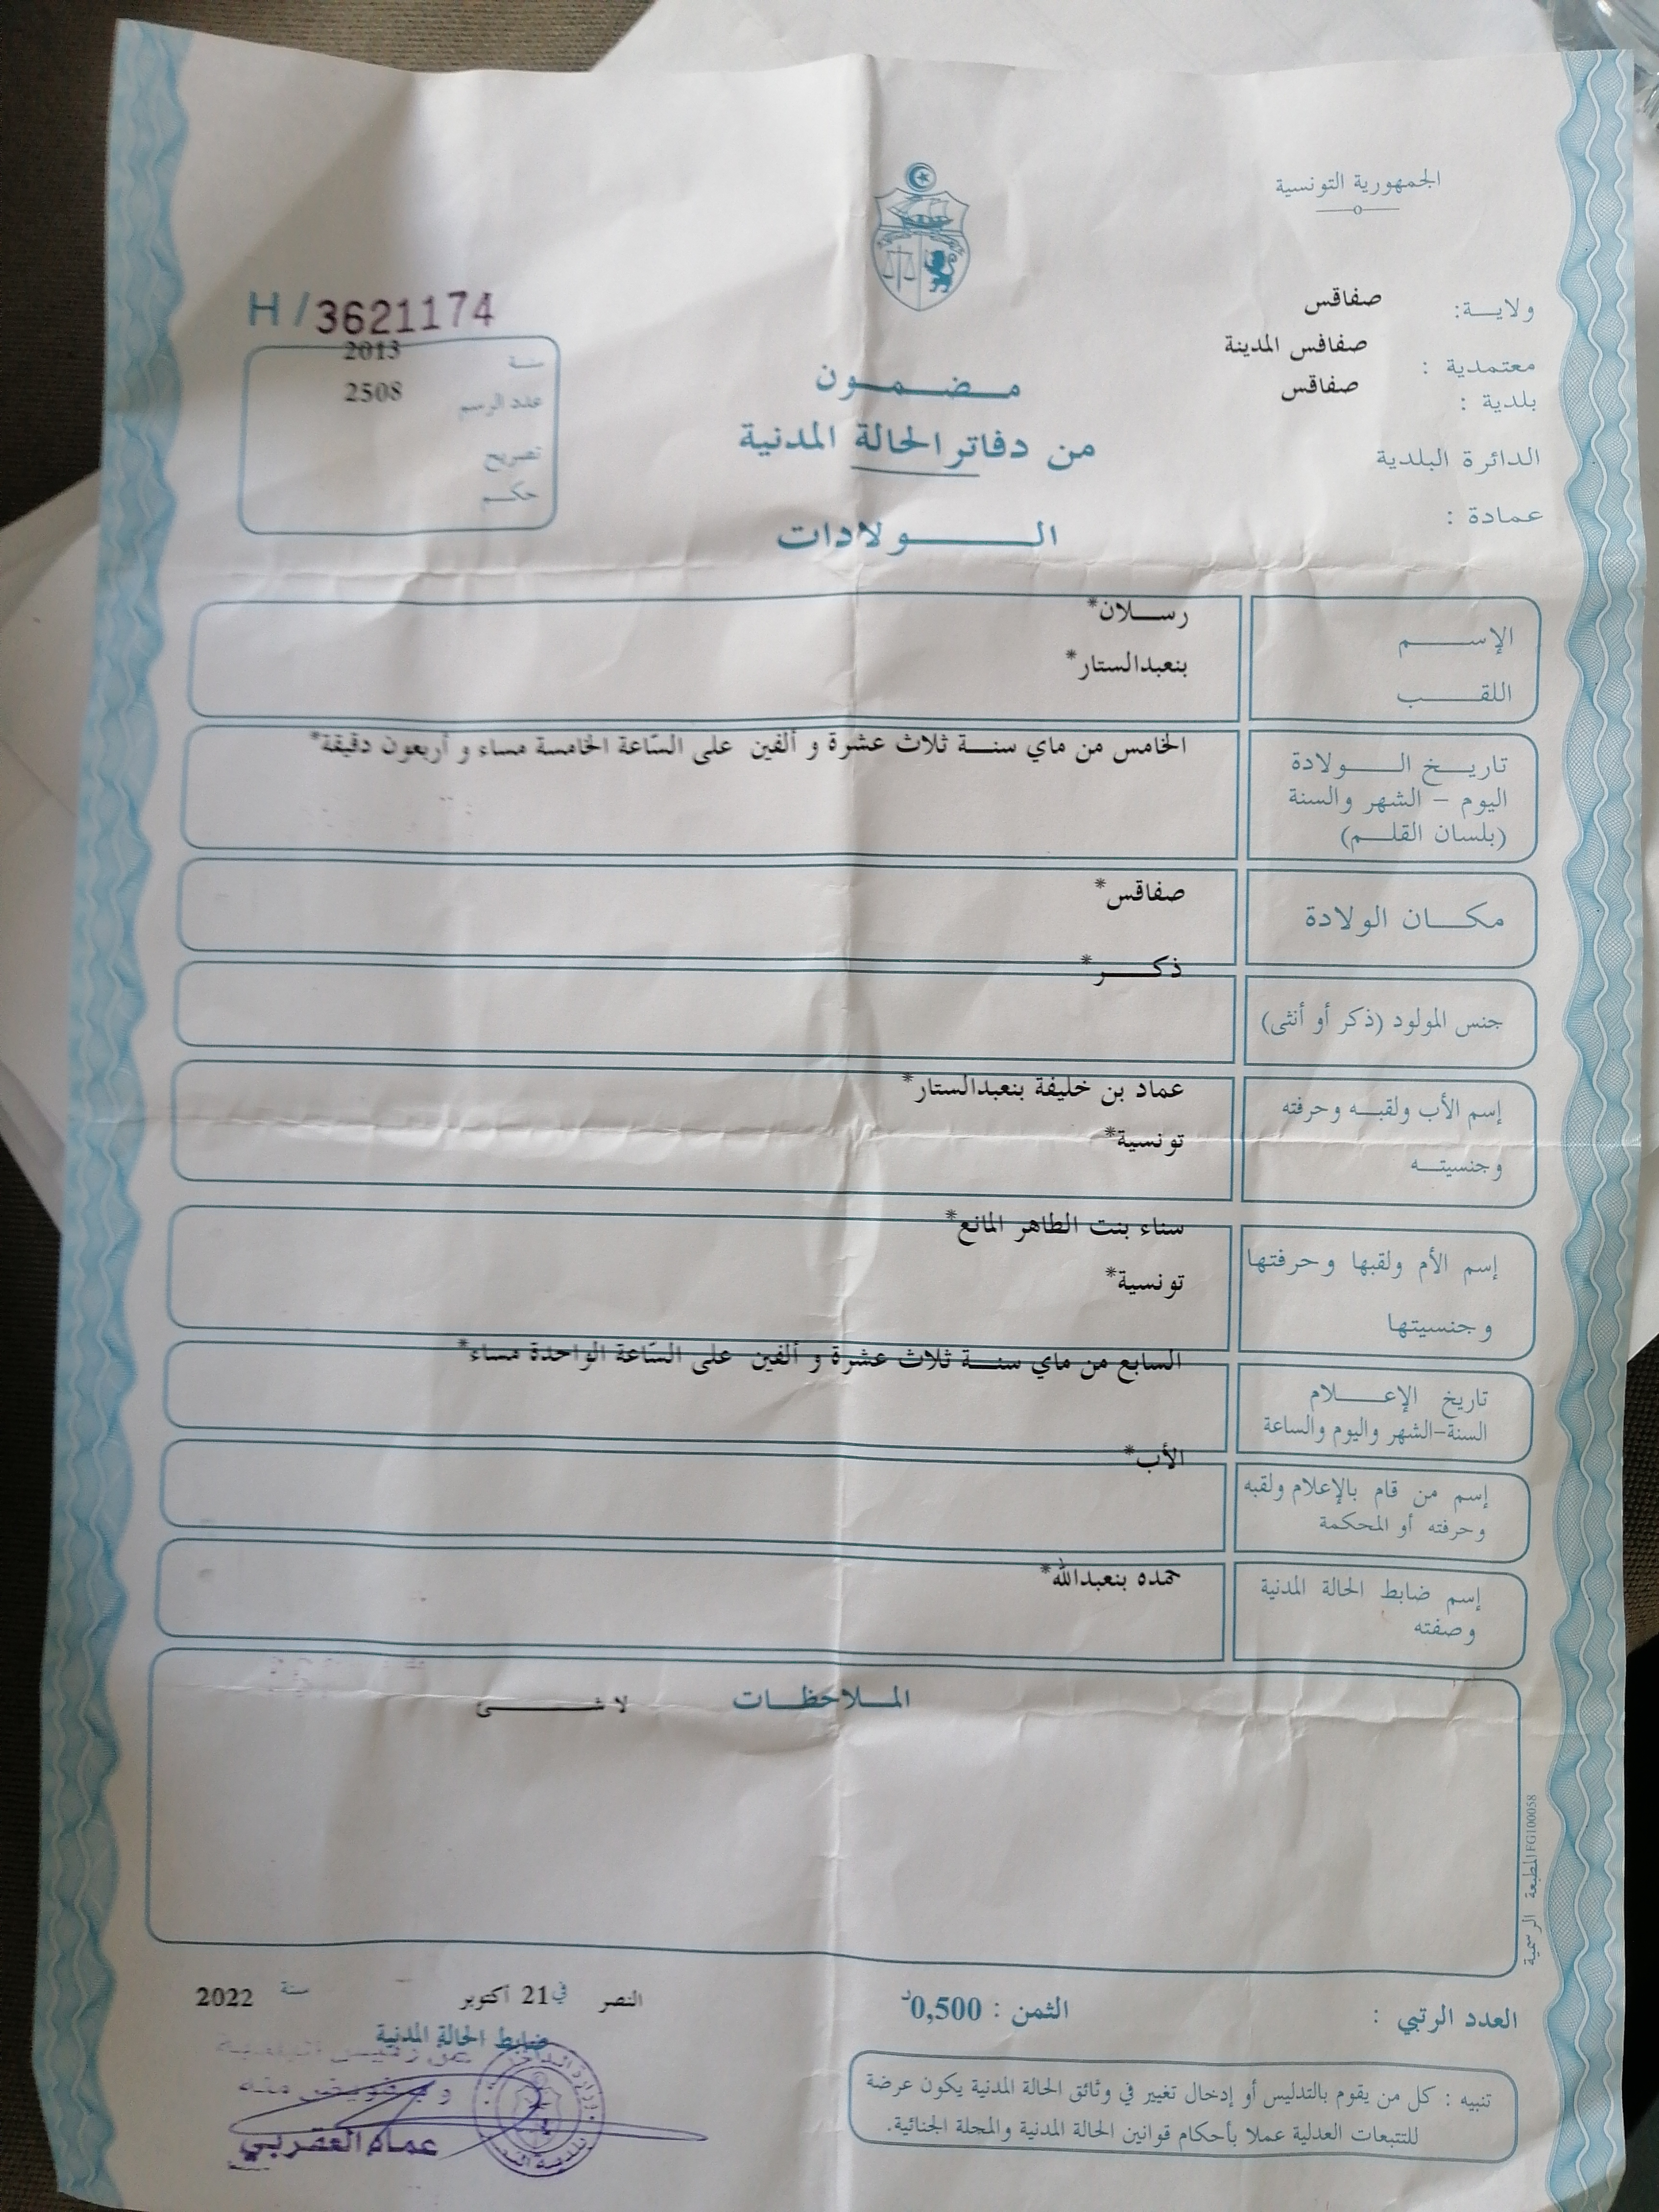 الجمهورية التونسية
ولاية: صفاقس
معتمدية : صفاقس المدينة
بلدية : صفاقس
الدائرة البلدية
عمادة :
H / 3621174
سنة 2013
عدد الرسم 2508
تصريح
حكم
مضمون
من دفاتر الحالة المدنية
الولادات
الإسم رسلان*
اللقب بنعبدالستار*
تاريخ الولادة الخامس من ماي سنة ثلاث عشرة و ألفين على السّاعة الخامسة مساء و أربعون دقيقة*
اليوم – الشهر والسنة
(بلسان القلم)
مكان الولادة صفاقس*
جنس المولود (ذكر أو أنثى) ذكر*
إسم الأب ولقبه وحرفته عماد بن خليفة بنعبدالستار*
وجنسيته تونسية*
إسم الأم ولقبها وحرفتها سناء بنت الطاهر المانع*
وجنسيتها تونسية*
تاريخ الإعلام السابع من ماي سنة ثلاث عشرة و ألفين على السّاعة الواحدة مساء*
السنة-الشهر واليوم والساعة
إسم من قام بالإعلام ولقبه الأب*
وحرفته أو المحكمة
إسم ضابط الحالة المدنية حمده بنعبدالله*
وصفته
الملاحظات لا شئ
المطبعة الرسمية FG100058
العدد الرتبي :
الثمن : 0,500د
النصر في 21 أكتوبر سنة 2022
ضابط الحالة المدنية
عن رئيس
و بتفويض منه
عماد العقربي
تنبيه : كل من يقوم بالتدليس أو إدخال تغيير في وثائق الحالة المدنية يكون عرضة
للتتبعات العدلية عملا بأحكام قوانين الحالة المدنية والمجلة الجنائية.